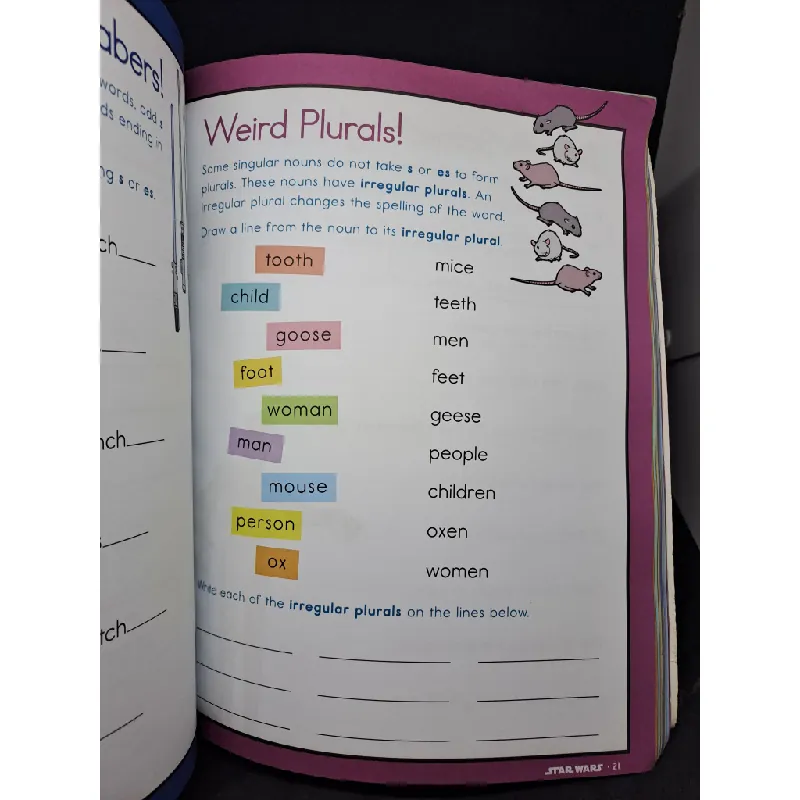 abers!
words, add s
ds ending in
ng s or es.
ch
nch
s
tch
Weird Plurals!
Some singular nouns do not take s or es to form
plurals. These nouns have irregular plurals. An
irregular plural changes the spelling of the word.
Draw a line from the noun to its irregular plural.
tooth mice
child teeth
goose men
foot feet
woman geese
man people
mouse children
person oxen
ox women
Write each of the irregular plurals on the lines below.
STAR WARS • 21